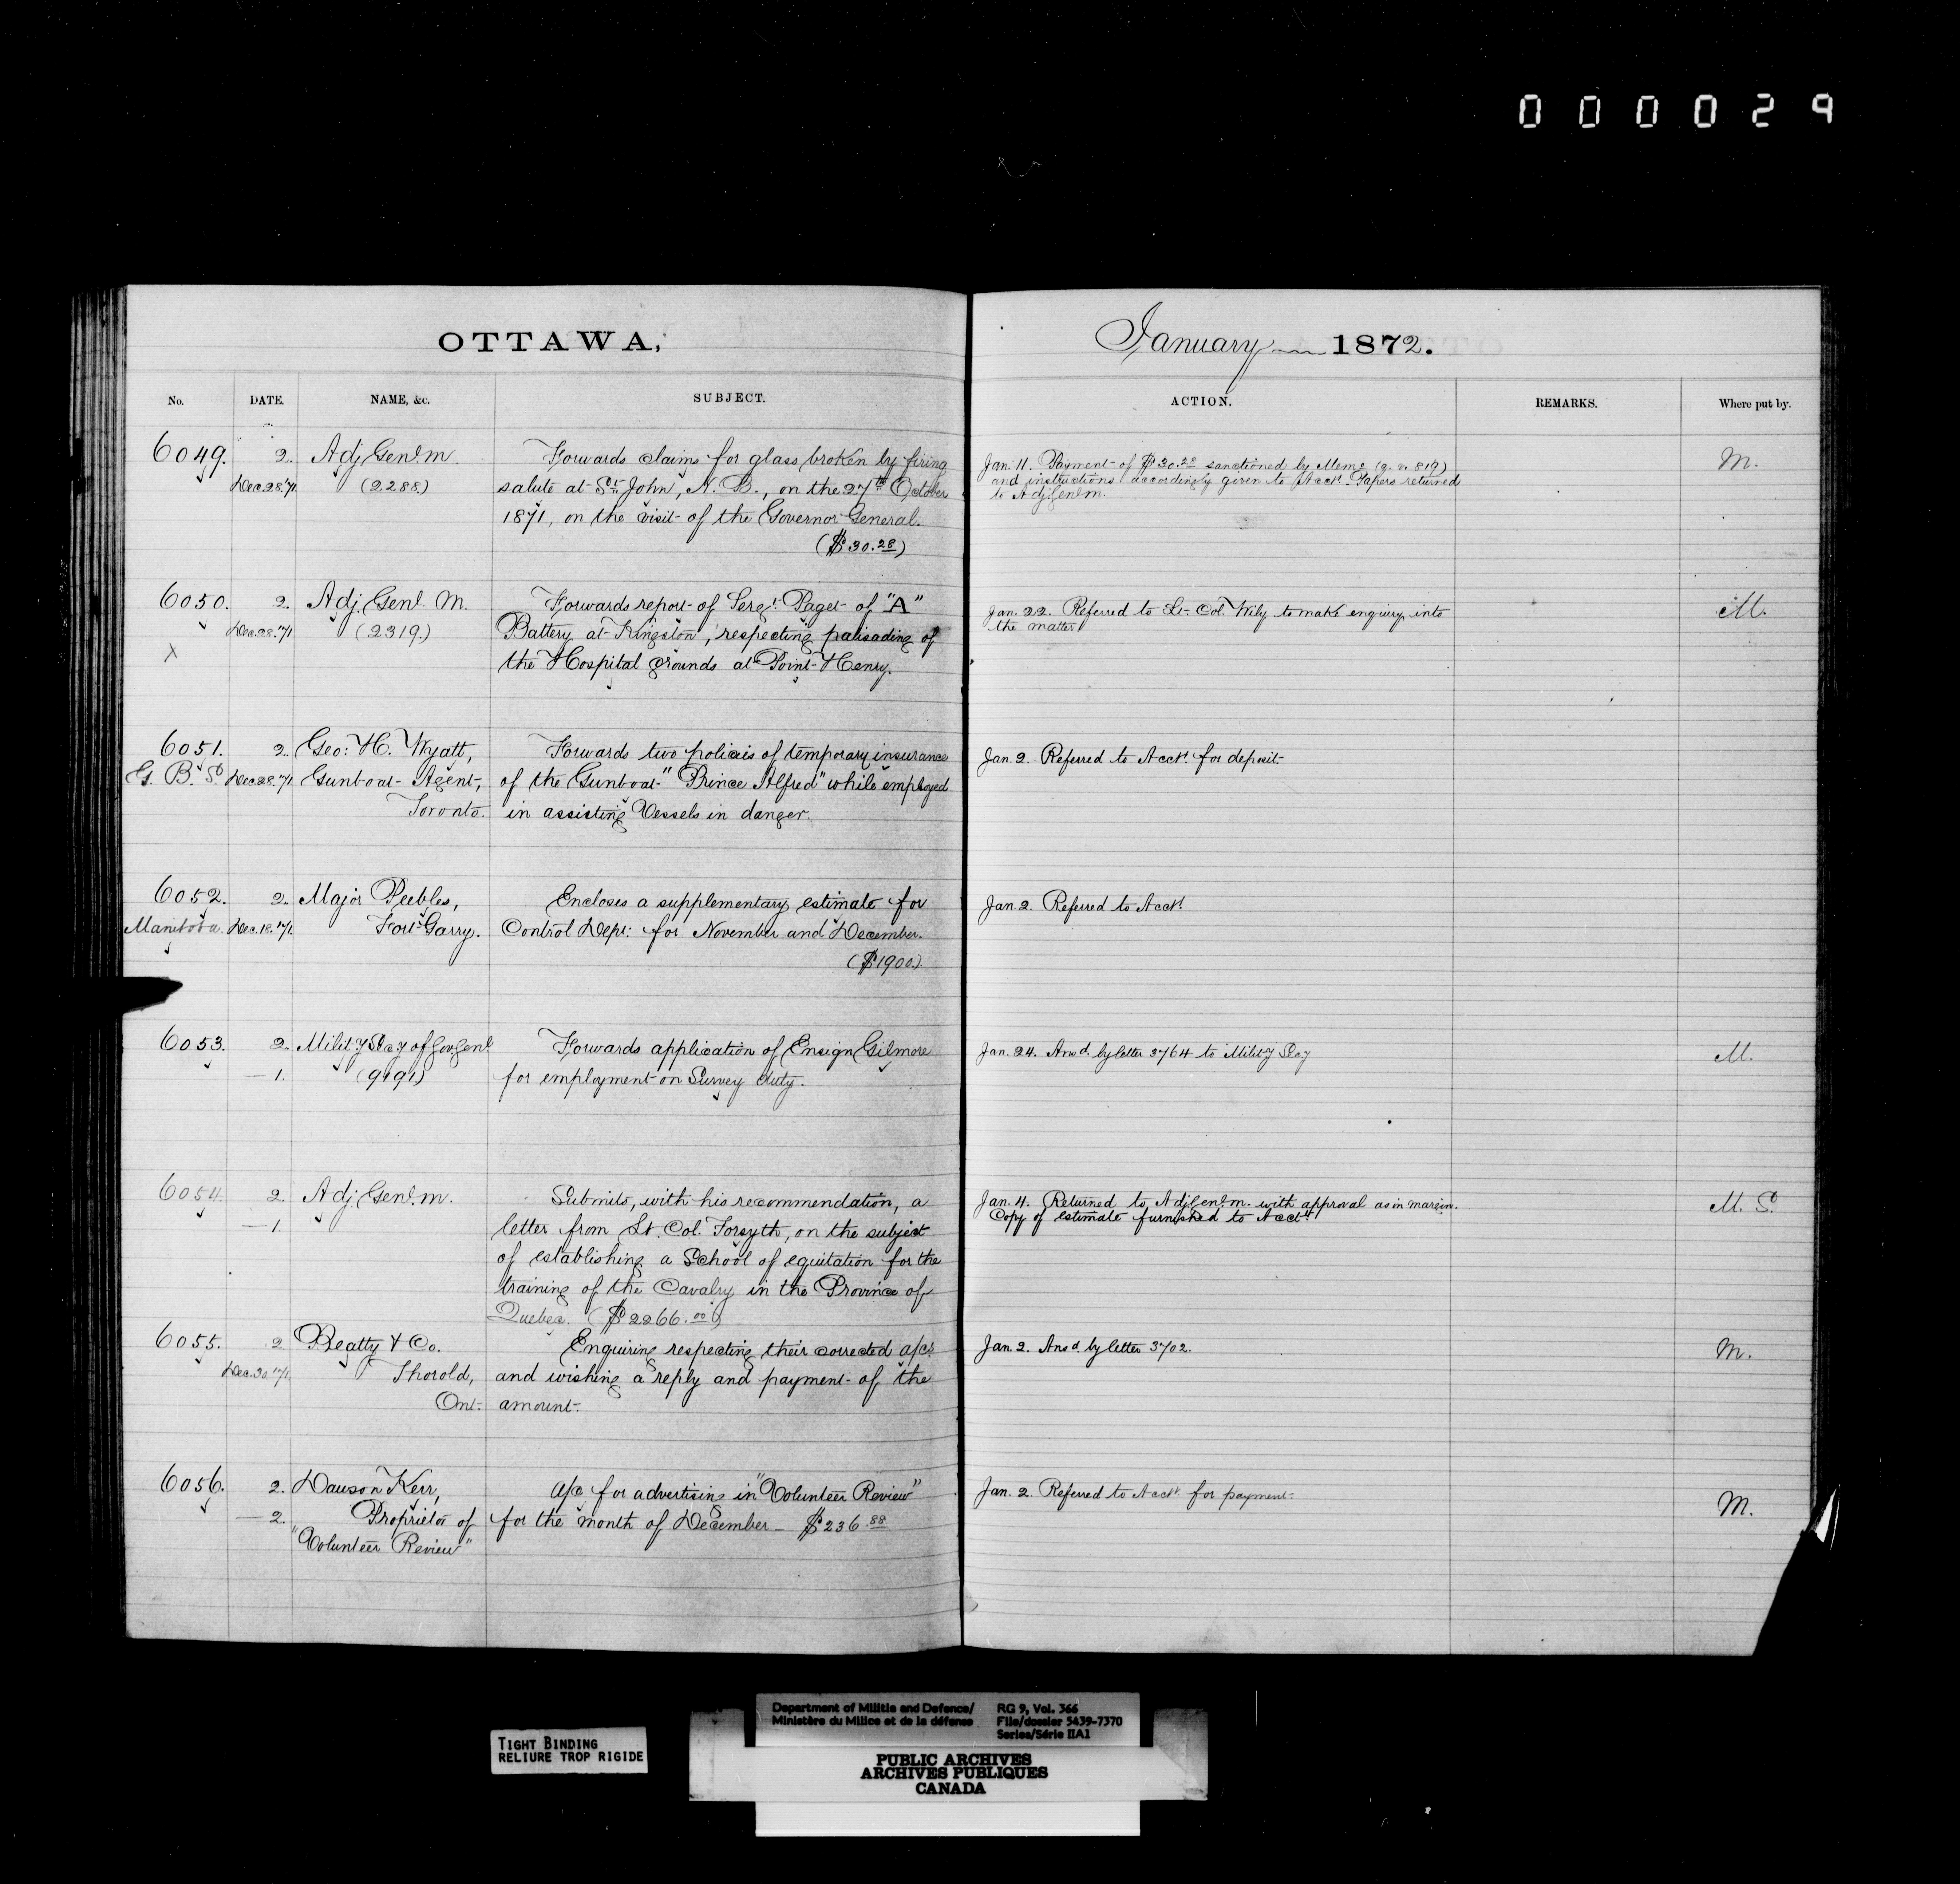 0 0 0 0 2 9
OTTAWA,
January 1872.
No. DATE. NAME, &c. SUBJECT.
ACTION. REMARKS. Where put by.
6049. 2. Adj Genl. M. Forwards claims for glass broken by firing
Dec. 28. '71 (2288) salute at St. John, N. B., on the 27th October
1871, on the visit of the Governor General.
($30.28)
Jan. 11. Payment of $30.28 sanctioned by Memo (q. v. 819)
and instructions accordingly given to Acct. Papers returned
to Adj Genl m.
M.
6050. 2. Adj. Genl. M. Forwards report of Sergt. Paget of "A"
Dec. 28. '71 (2319.) Battery at Kingston, respecting palisading of
X the Hospital grounds at Point Henry.
Jan. 22. Referred to Lt. Col. Wily to make enquiry into
the matter
M.
6051. 2. Geo: H. Wyatt, Forwards two policies of temporary insurance
G. B. S. Dec. 28. '71 Gunboat Agent, of the Gunboat "Prince Alfred" while employed
Toronto. in assisting Vessels in danger.
Jan. 2. Referred to Acct. for deposit
6052. 2. Major Peebles, Encloses a supplementary estimate for
Manitoba. Dec. 18. '71 Fort Garry. Control Dept: for November and December.
($1900.)
Jan. 2. Referred to Acct.
6053. 2. Milit'y Sec'y of Gov Genl Forwards application of Ensign Gilmore
— 1. (9191) for employment on Survey duty.
Jan. 24. Answd. by letter 3764 to Milit'y Sec'y
M.
6054. 2. Adj. Genl. m. Submits, with his recommendation, a
— 1. letter from Lt. Col. Forsyth, on the subject
of establishing a School of equitation for the
training of the Cavalry in the Province of
Quebec. ($2266.00)
Jan. 4. Returned to Adj Genl. m. with approval as in margin.
Copy of estimate furnished to Acct.
M. S.
6055. 2. Beatty & Co. Enquiring respecting their corrected a/cs
Dec. 30 '71 Thorold, and wishing a reply and payment of the
Ont. amount.
Jan. 2. Ansd. by letter 3702.
M.
6056. 2. Dawson Kerr, a/c for advertising in "Volunteer Review"
— 2. Proprietor of for the month of December — $236.88
"Volunteer Review"
Jan. 2. Referred to Acct. for payment.
M.
TIGHT BINDING
RELIURE TROP RIGIDE
Department of Militia and Defence/ RG 9, Vol. 366
Ministère du Milice et de la défense File/dossier 5439-7370
Series/Série IIA1
PUBLIC ARCHIVES
ARCHIVES PUBLIQUES
CANADA